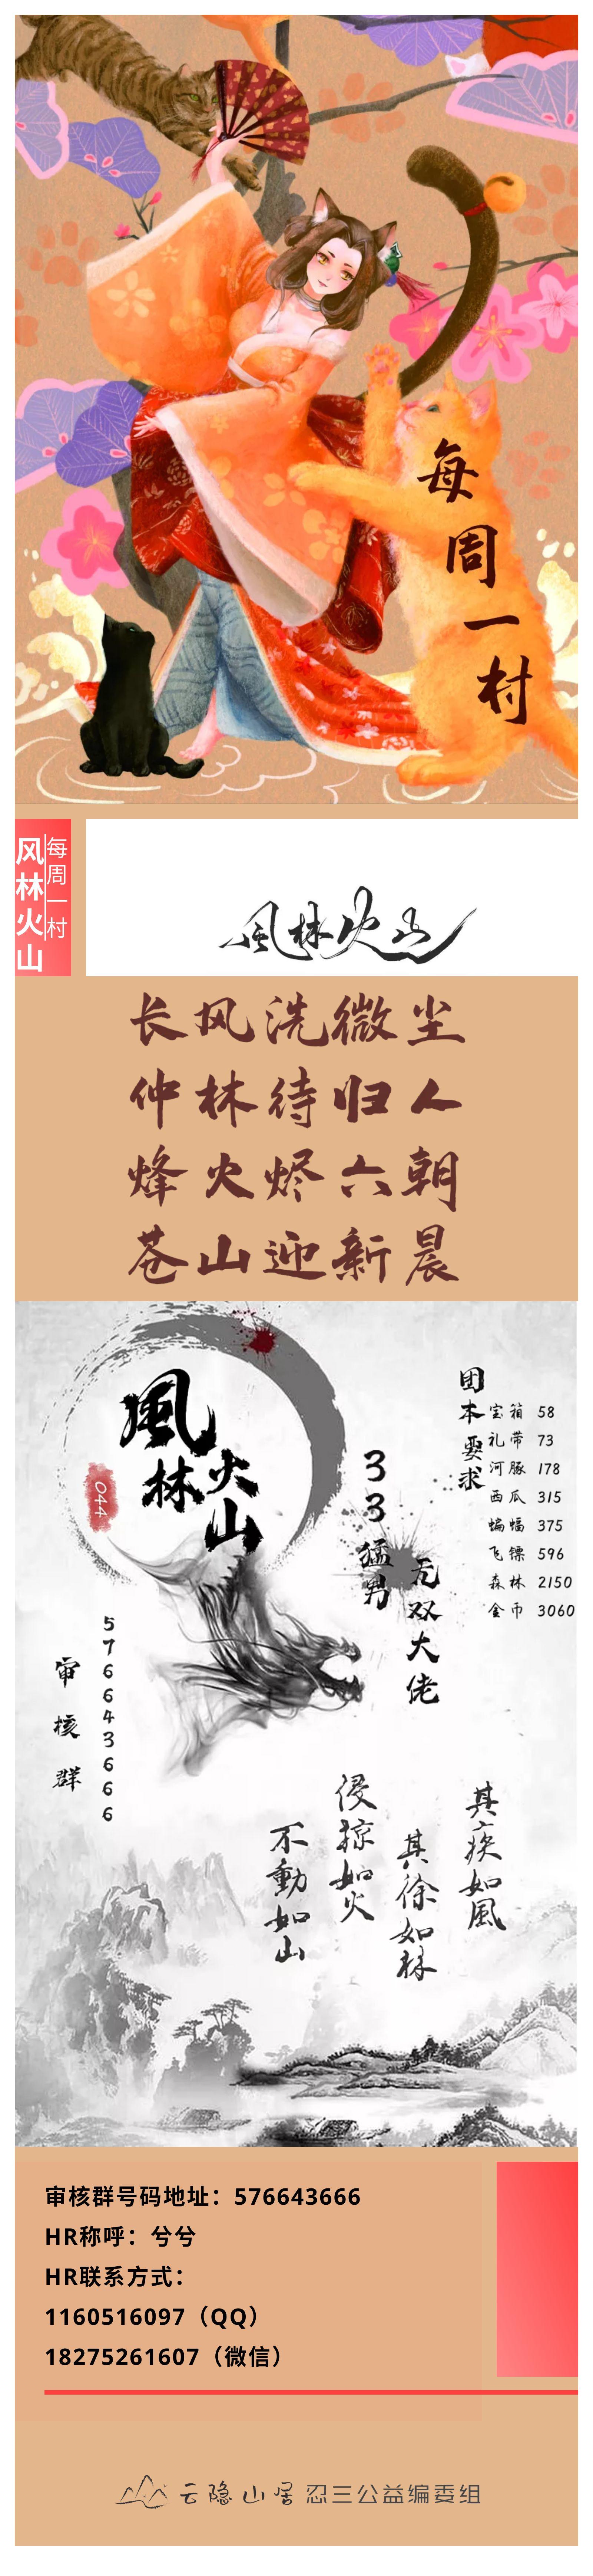 每周一村
每周一村
风林火山
風林火山
长风洗微尘
仲林待归人
烽火烬六朝
苍山迎新晨
風林火山
044
团本要求
宝箱 58
礼带 73
河豚 178
西瓜 315
蝙蝠 375
飞镖 596
森林 2150
金币 3060
33猛男
无双大佬
审核群
576643666
其疾如風
其徐如林
侵掠如火
不動如山
审核群号码地址：576643666
HR称呼：兮兮
HR联系方式：
1160516097（QQ）
18275261607（微信）
云隐山居 忍三公益编委组